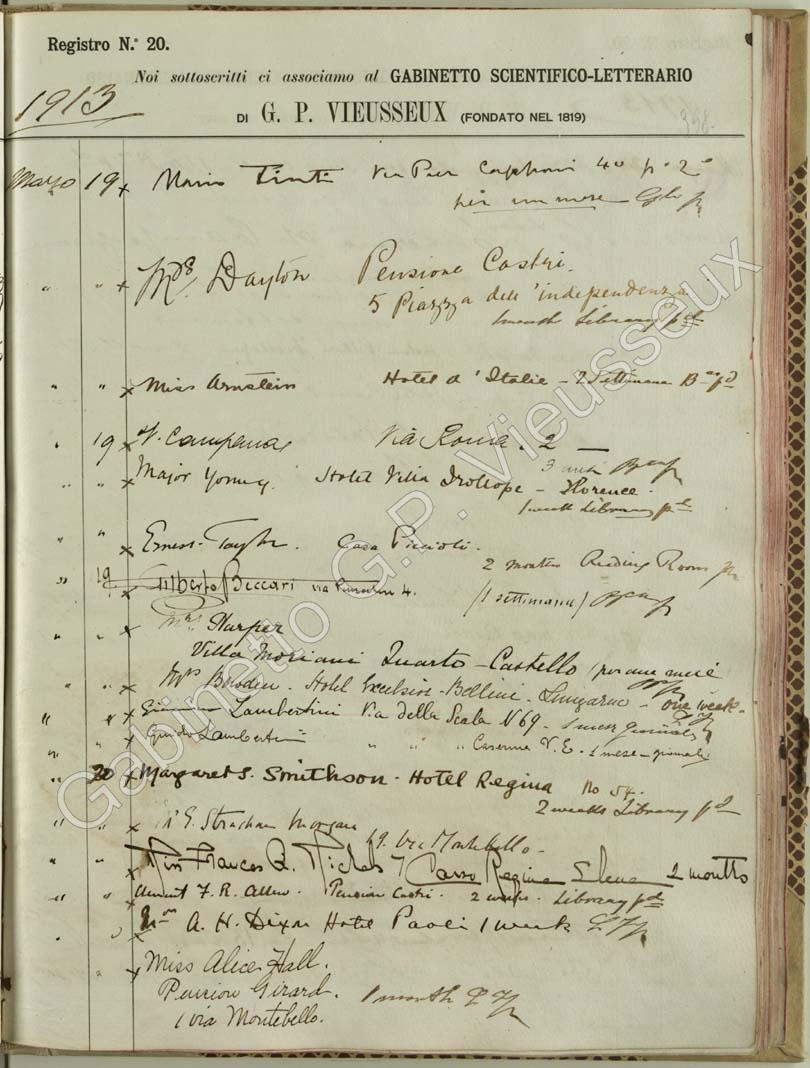 Registro N.° 20.
Noi sottoscritti ci associamo al GABINETTO SCIENTIFICO-LETTERARIO
1913
DI G. P. VIEUSSEUX (FONDATO NEL 1819)
Marzo 19 x Mario Tinti Via Pier Capponi 40 p° 2°
per un mese
" " x Mrs Dayton Pensione Castri.
5 Piazza dell'indipendenza
1 month Library pd
" " x Miss Arnstein Hotel d'Italie - 2 Settimane
" 19 x V. Campana Via Roma. 2 —
3 mesi
" " x Major Young. Hotel Villa Trollope - Florence.
1 week Library pd
" " x Ernest Taylor. Casa Piccioli.
2 months Reading Room
" 19 x Gilberto Beccari via 4. (1 settimana)
" " x Mrs Harper
Villa Moriani Quarto-Castello per one mese
" " x Mrs Bowden. Hotel Excelsior-Bellini. Lungarno - one week.
" " x Lambertini Via della Scala N 69 - 1 mese giornali
" " x Guido Lambertini " " " Caserma V.E. - 1 mese - giornali
" 20 x Margaret S. Smithson - Hotel Regina No 54.
2 weeks Library pd
" " x E. Strachan Morgan
19. Via Montebello -
" " x Miss Frances R. Nichols 7 Corso Regina Elena 2 months
" " x F. R. Allen. Pension Castri. 2 weeks. Library pd
" " x A. H. Dixon Hotel Paoli 1 week
x Miss Alice Hall.
Pension Girard. 1 month
1 via Montebello.
Gabinetto G.P. Vieusseux